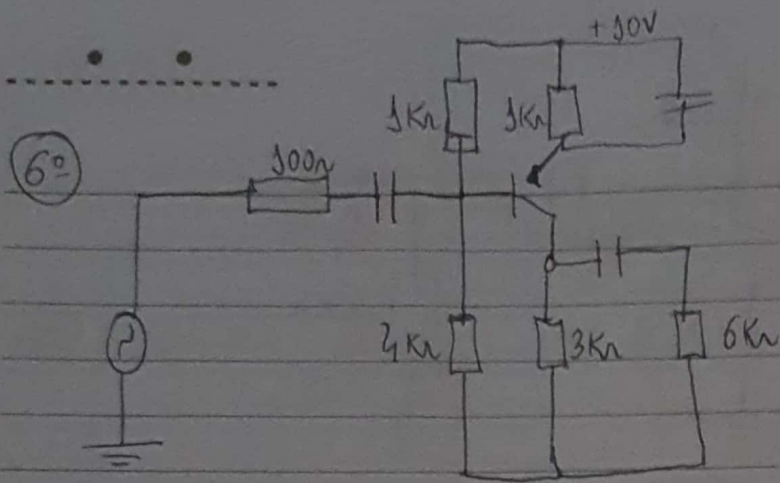 +10V
1KΩ
1KΩ
6º
100Ω
4KΩ
3KΩ
6KΩ